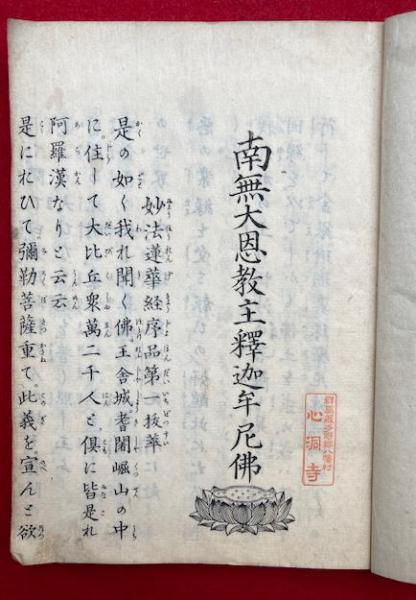 群馬縣多野郡八幡村
心洞寺
南無大恩教主釋迦牟尼佛
妙法蓮華経序品第一抜萃
是の如く我れ聞く佛王舎城耆闍崛山の中
に住して大比丘衆萬二千人と倶に皆是れ
阿羅漢なりと云云
是におひて彌勒菩薩重て此義を宣んと欲